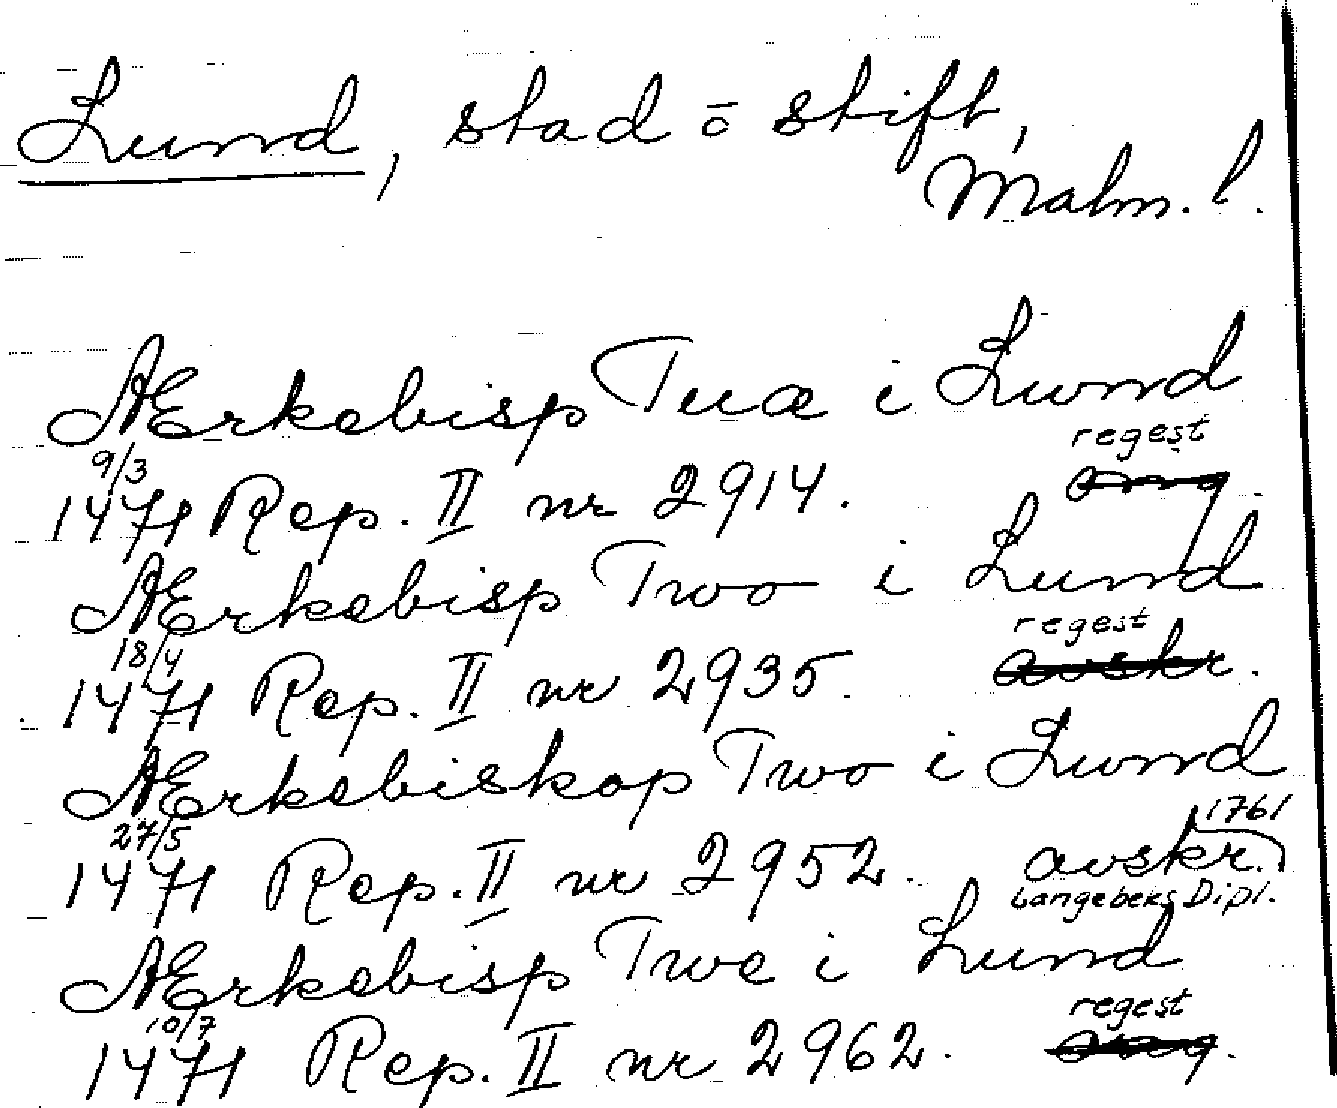 Lund, stad o stift,
Malm. l.
Ærkebisp Tuæ i Lund
9/3 regest
1471 Rep. II nr 2914. orig.
Ærkebisp Two i Lund
18/4 regest
1471 Rep. II nr 2935. avskr.
Ærkebiskop Two i Lund
27/5 1761
1471 Rep. II nr 2952. avskr.
Langebeks Dipl.
Ærkebisp Twe i Lund
10/7 regest
1471 Rep. II nr 2962. orig.